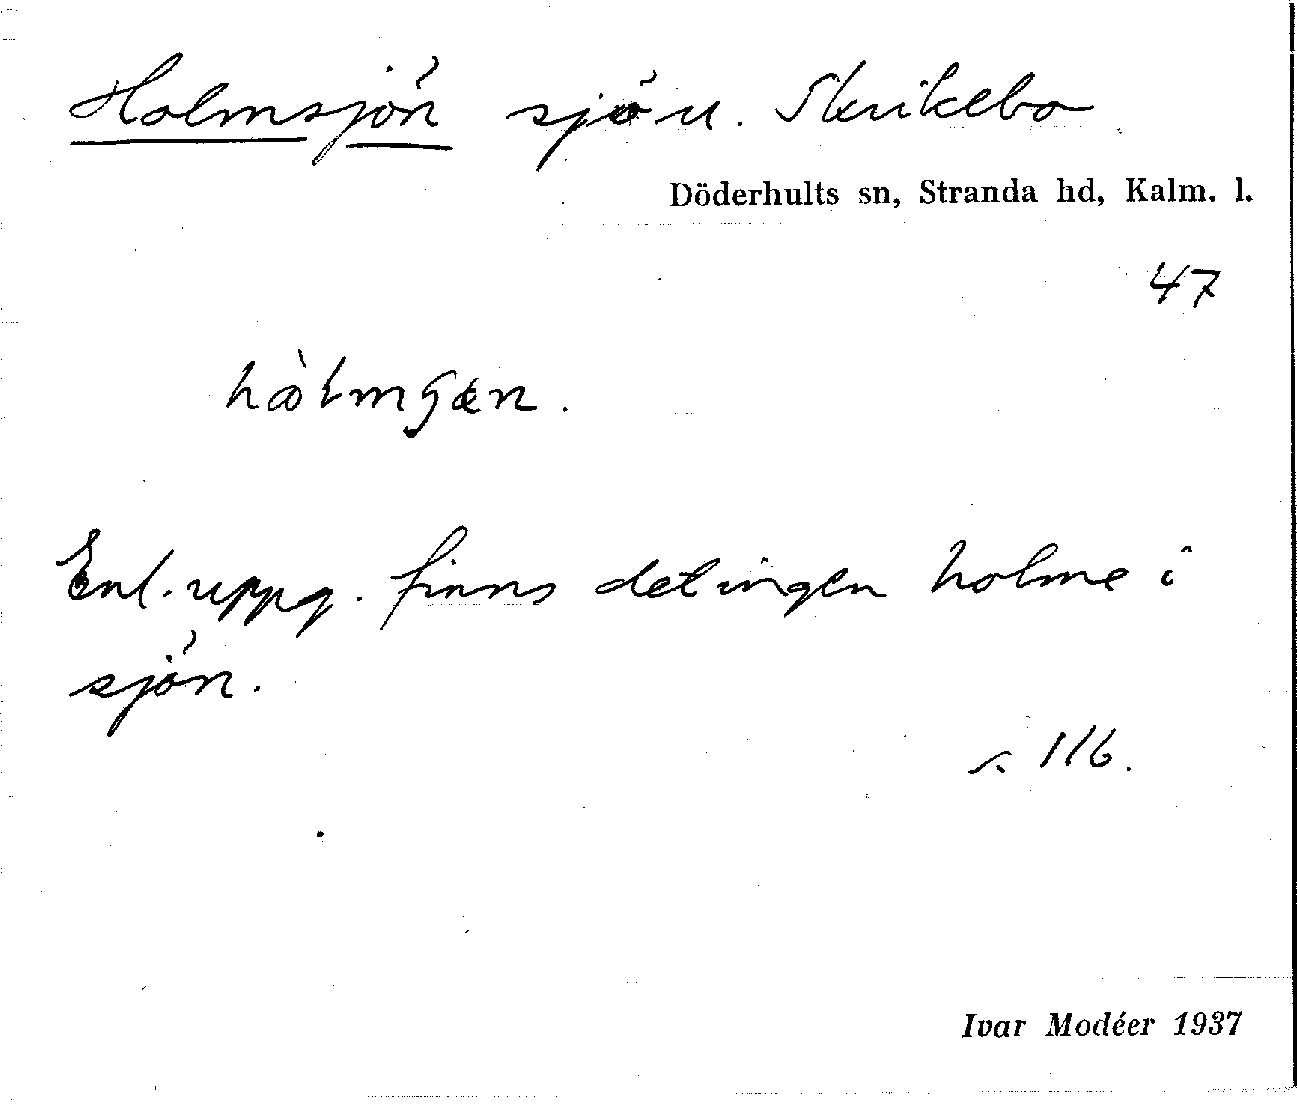 Holmsjön sjö u. Skrikebo
Döderhults sn, Stranda hd, Kalm. l.
47
Enl. uppg. finns det ingen holme i
sjön.
s. 116.
Ivar Modéer 1937